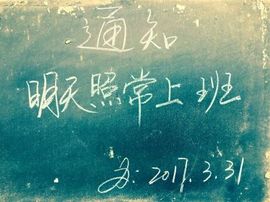 通知
明天照常上班
办: 2017.3.31